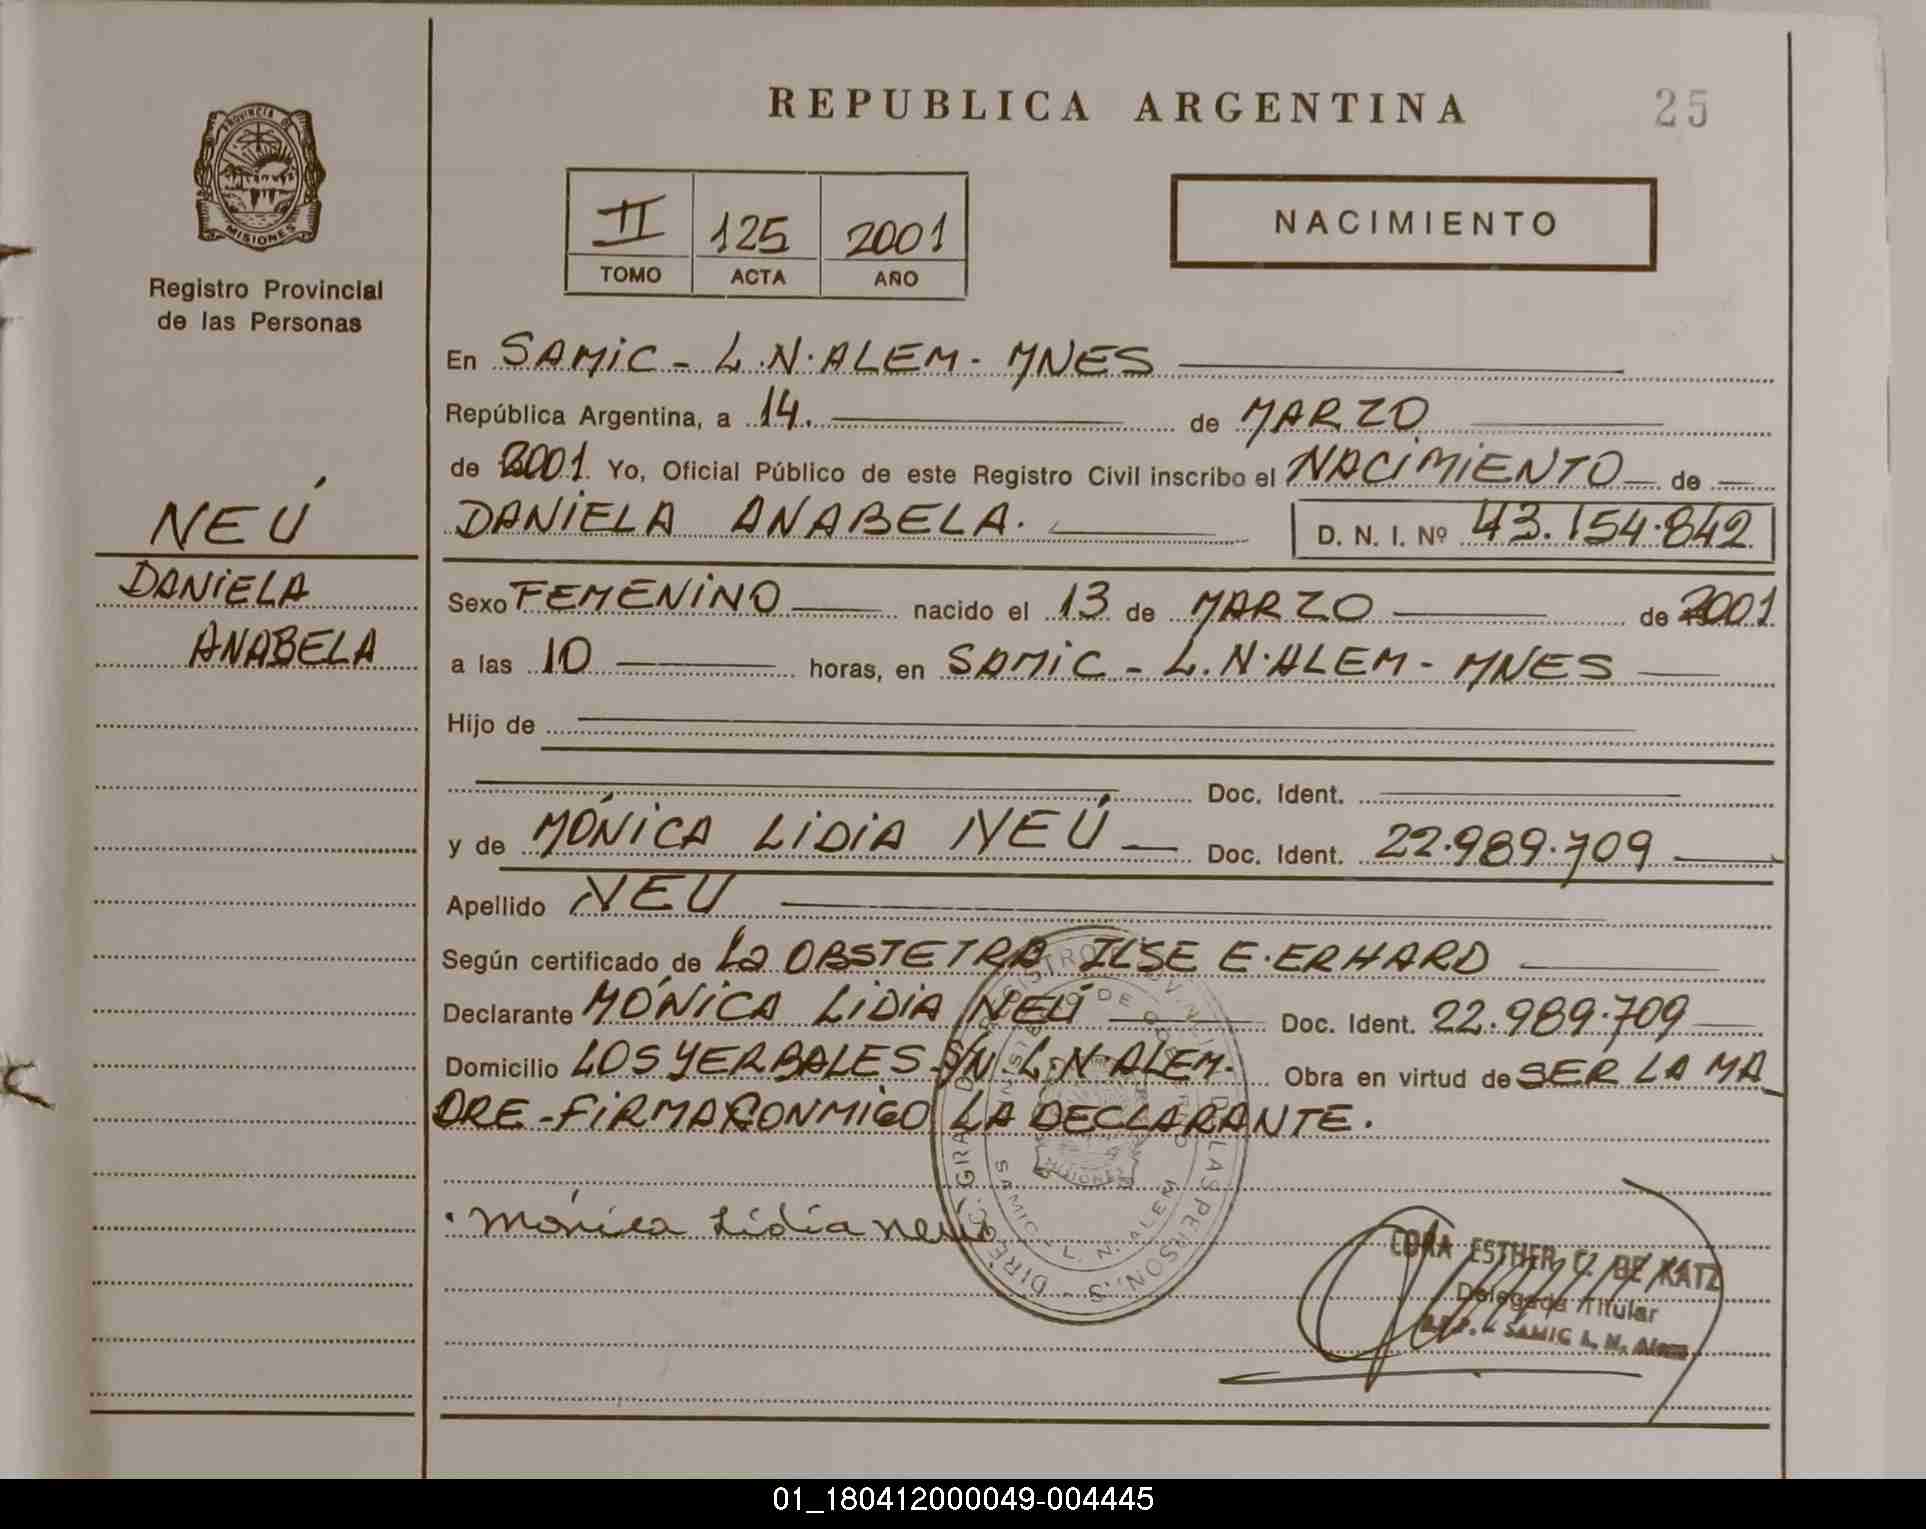 REPUBLICA ARGENTINA
25
PROVINCIA DE
MISIONES
Registro Provincial
de las Personas
II 125 2001
TOMO ACTA AÑO
NACIMIENTO
NEÚ
DANIELA
ANABELA
En SAMIC - L.N. ALEM - MNES
República Argentina, a 14. de MARZO
de 2001. Yo, Oficial Público de este Registro Civil inscribo el NACIMIENTO de
DANIELA ANABELA. D. N. I. Nº 43.154.842
Sexo FEMENINO nacido el 13 de MARZO de 2001
a las 10 horas, en SAMIC - L.N. ALEM - MNES
Hijo de
Doc. Ident.
y de MÓNICA LIDIA NEÚ Doc. Ident. 22.989.709
Apellido NEU
Según certificado de La OBSTETRA ILSE E. ERHARD
Declarante MÓNICA LIDIA NEÚ Doc. Ident. 22.989.709
Domicilio LOS YERBALES S/N L.N. ALEM. Obra en virtud de SER LA MA
DRE - FIRMA CONMIGO LA DECLARANTE.
Mónica Lidia Neu
SAMIC - L. N. ALEM
MISIONES
CORA ESTHER C. DE KATZ
Delegada Titular
SAMIC L. N. Alem
01_180412000049-004445